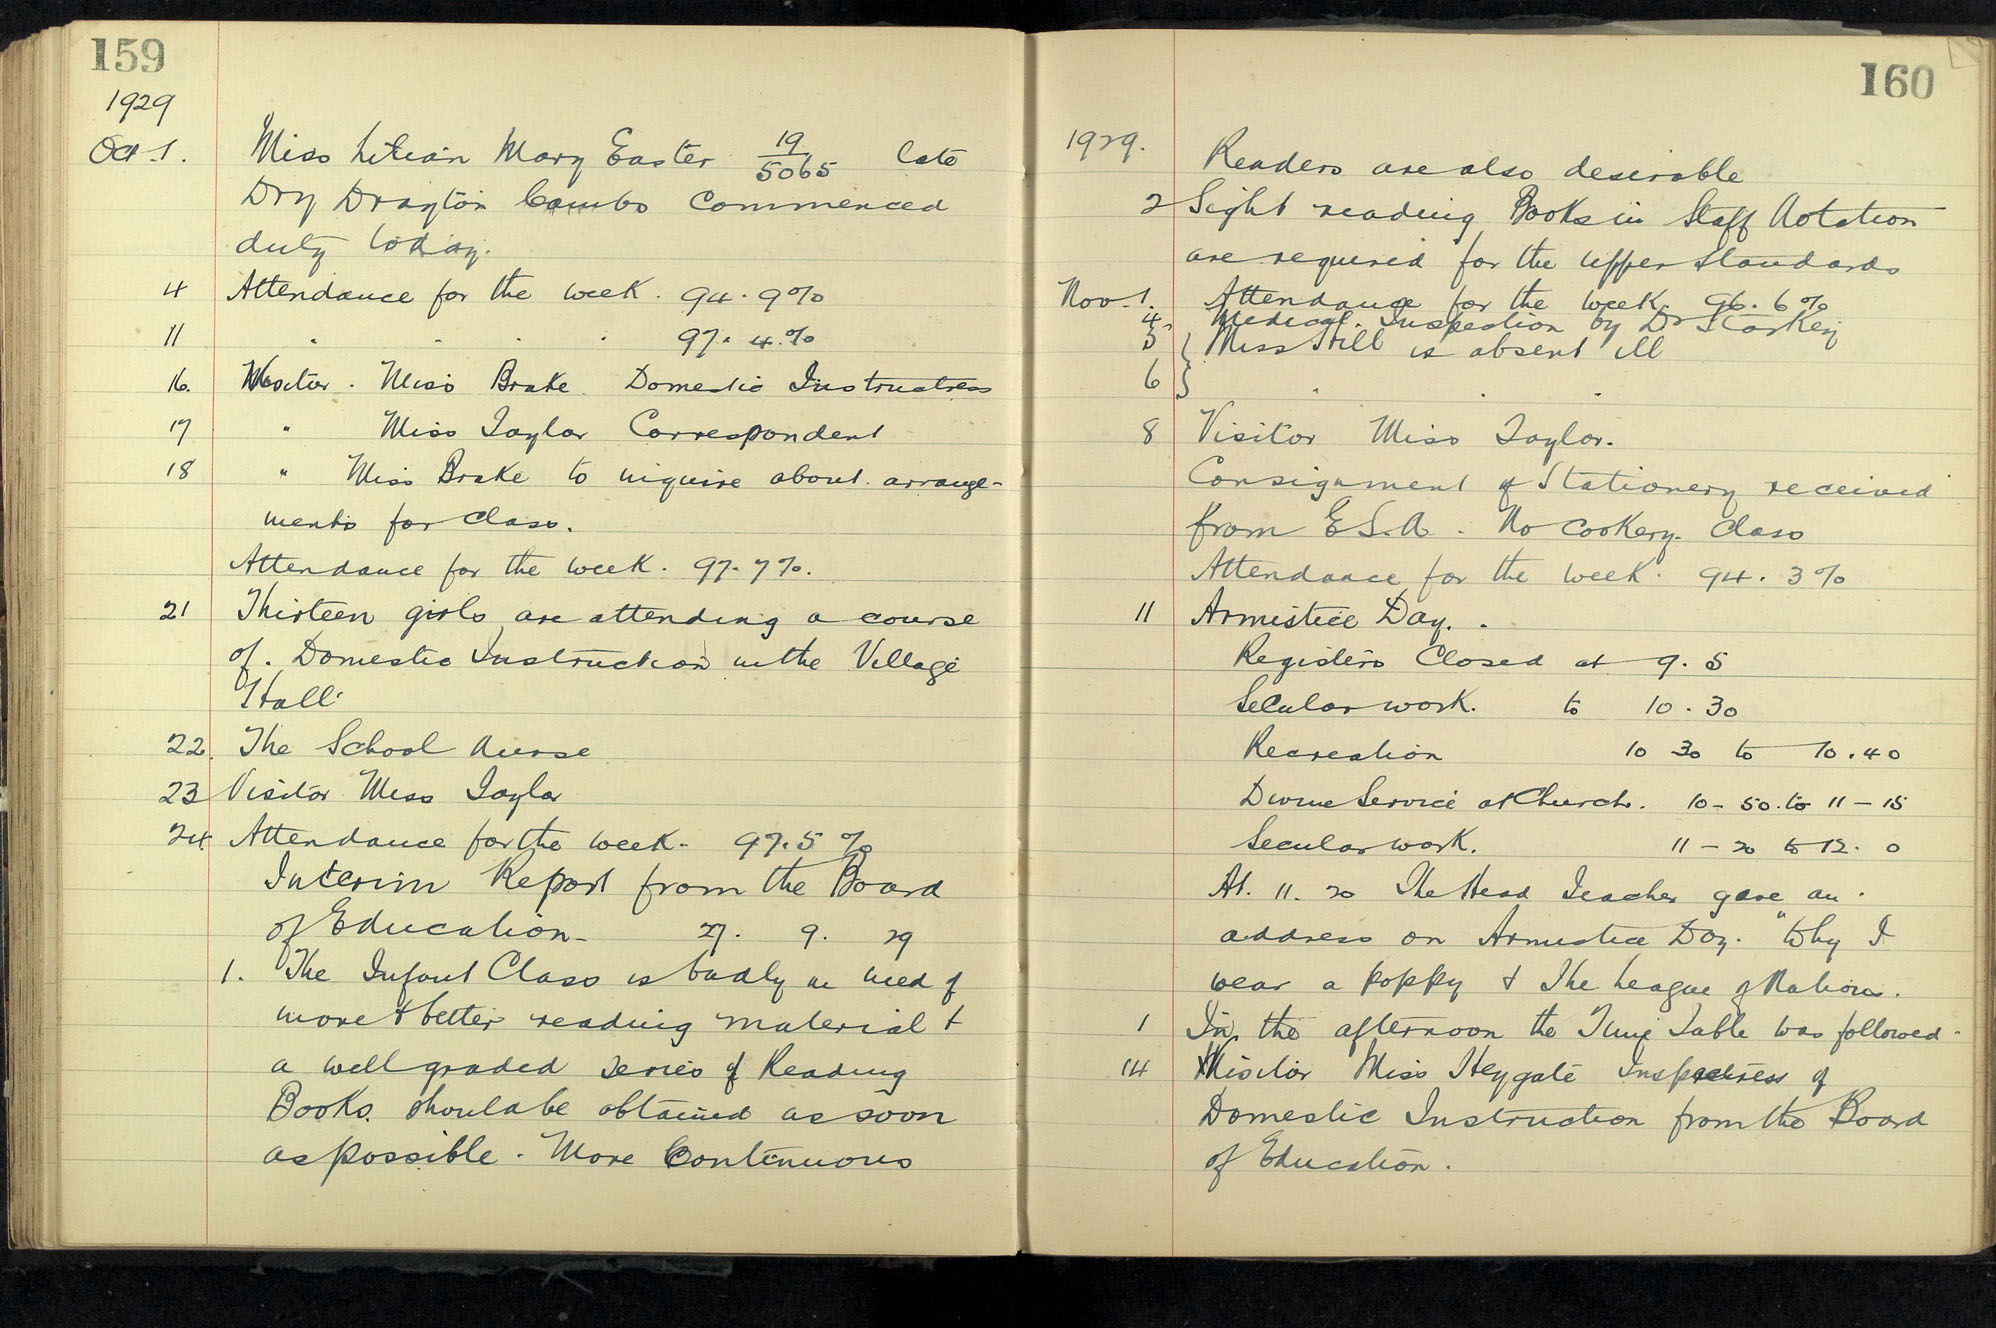 159
1929
Oct 1. Miss Lilian Mary Easter 19/5065 late
Dry Drayton Cambs commenced
duty today.
4 Attendance for the week. 94.9%
11 " " " " 97.4.%
16. Visitor. Miss Brake. Domestic Instructress
17 " Miss Taylor Correspondent
18 " Miss Brake to inquire about arrange-
ments for class.
Attendance for the week. 97.7%.
21 Thirteen girls are attending a course
of. Domestic Instruction in the Village
Hall.
22. The School Nurse
23 Visitor Miss Taylor
24. Attendance for the week. 97.5%
Interim Report from the Board
of Education - 27. 9. 29
1. The Infant Class is badly in need of
more & better reading material &
a well graded series of Reading
Books. should be obtained as soon
as possible. More Continuous
160
1929. Readers are also desirable
2 Sight reading Books in Staff Notation
are required for the upper standards
Nov. 1. Attendance for the week. 96.6%
4. Medical. Inspection by Dr
5 { Miss Still is absent ill
6 } " " "
8 Visitor Miss Taylor.
Consignment of Stationery received
from E.S.A. No cookery. class
Attendance for the week. 94.3%
11 Armistice Day. .
Registers Closed at 9.5
Secular work. to 10.30
Recreation 10 30 to 10.40
Divine Service at Church. 10-50. to 11-15
Secular work. 11-20 to 12.0
At. 11.20 The Head Teacher gave an
address on Armistice Day. "Why I
wear a poppy & The League of Nations.
1 In the afternoon the Time Table was followed.
14 Visitor Miss Heygate Inspectress of
Domestic Instruction from the Board
of Education.